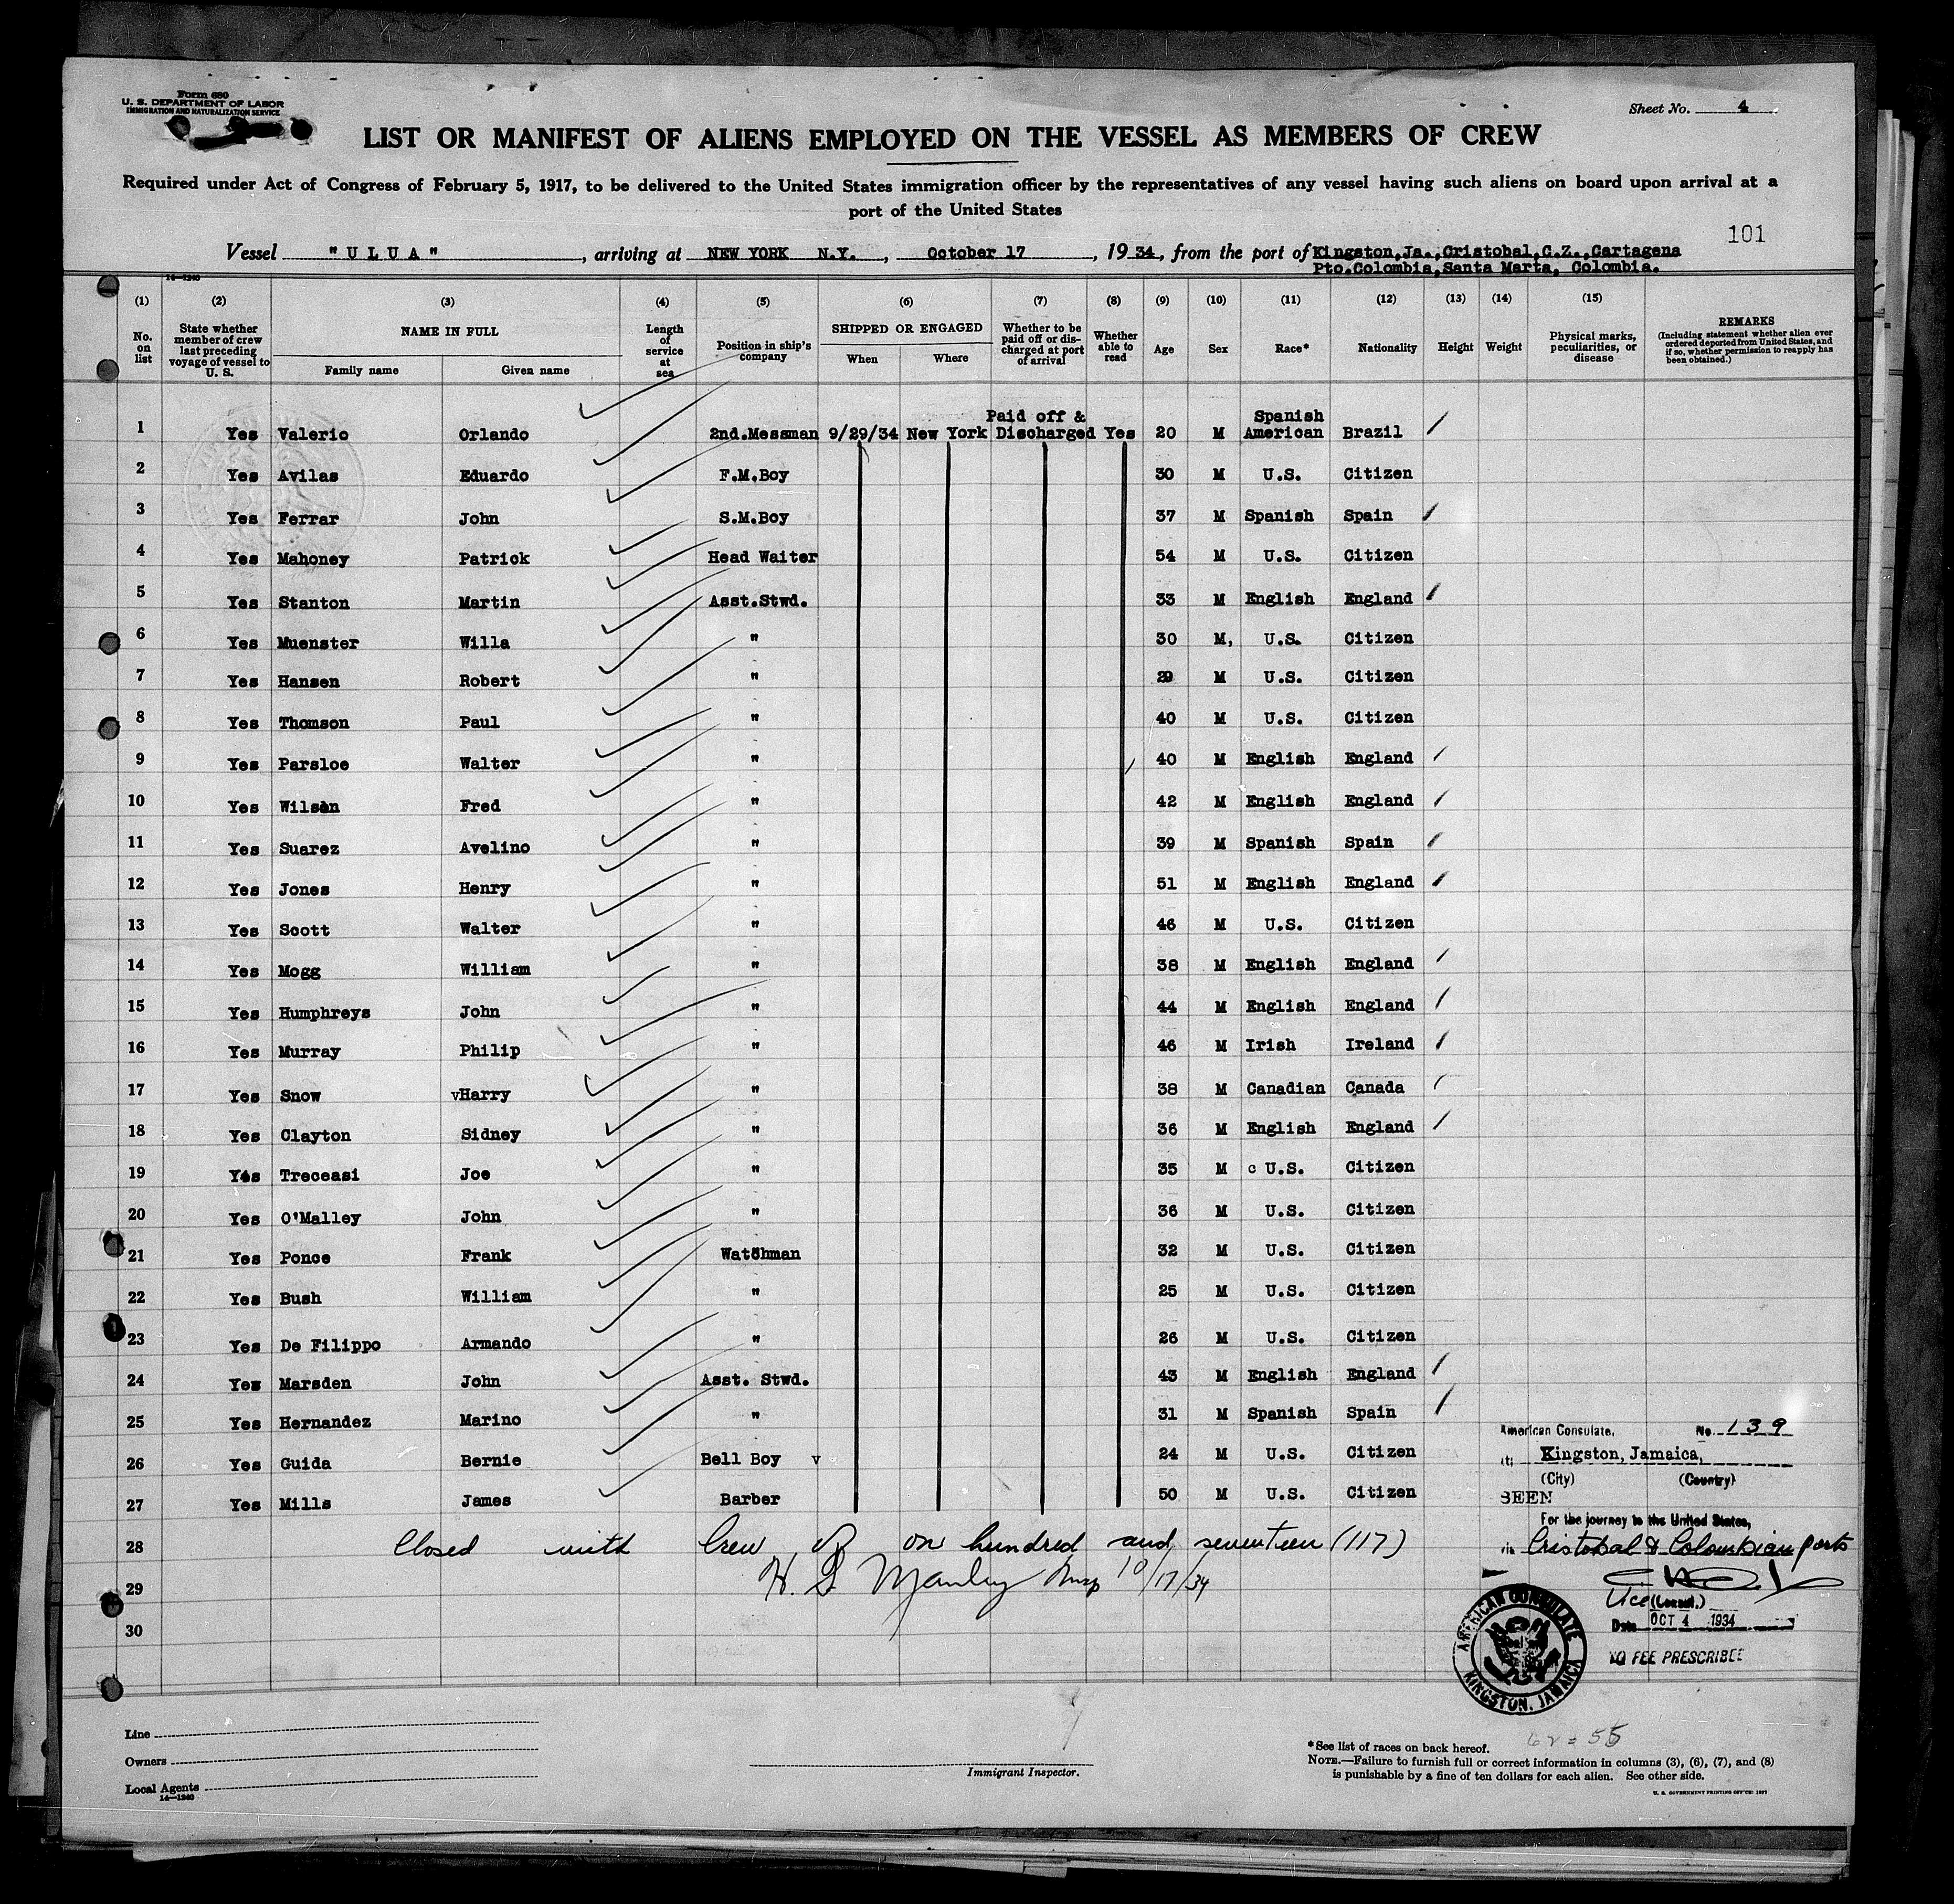 Form 680
U. S. DEPARTMENT OF LABOR
IMMIGRATION AND NATURALIZATION SERVICE
Sheet No. 4
LIST OR MANIFEST OF ALIENS EMPLOYED ON THE VESSEL AS MEMBERS OF CREW
Required under Act of Congress of February 5, 1917, to be delivered to the United States immigration officer by the representatives of any vessel having such aliens on board upon arrival at a
port of the United States
101
Vessel "ULUA", arriving at NEW YORK N.Y., October 17, 1934, from the port of Kingston,Ja.,Cristobal,C.Z.,Cartagena
Pto.Colombia,Santa Marta, Colombia.
14—1240
(1) (2) (3) (4) (5) (6) (7) (8) (9) (10) (11) (12) (13) (14) (15)
No. on list State whether member of crew last preceding voyage of vessel to U. S. NAME IN FULL Family name Given name Length of service at sea Position in ship's company SHIPPED OR ENGAGED When Where Whether to be paid off or discharged at port of arrival Whether able to read Age Sex Race* Nationality Height Weight Physical marks, peculiarities, or disease REMARKS (Including statement whether alien ever ordered deported from United States, and if so, whether permission to reapply has been obtained.)
1 Yes Valerio Orlando 2nd.Messman 9/29/34 New York Paid off & Discharged Yes 20 M Spanish American Brazil
2 Yes Avilas Eduardo F.M.Boy 30 M U.S. Citizen
3 Yes Ferrar John S.M.Boy 37 M Spanish Spain
4 Yes Mahoney Patrick Head Waiter 54 M U.S. Citizen
5 Yes Stanton Martin Asst.Stwd. 33 M English England
6 Yes Muenster Willa " 30 M, U.S. Citizen
7 Yes Hansen Robert " 29 M U.S. Citizen
8 Yes Thomson Paul " 40 M U.S. Citizen
9 Yes Parsloe Walter " 40 M English England
10 Yes Wilson Fred " 42 M English England
11 Yes Suarez Avelino " 39 M Spanish Spain
12 Yes Jones Henry " 51 M English England
13 Yes Scott Walter " 46 M U.S. Citizen
14 Yes Mogg William " 38 M English England
15 Yes Humphreys John " 44 M English England
16 Yes Murray Philip " 46 M Irish Ireland
17 Yes Snow vHarry " 38 M Canadian Canada
18 Yes Clayton Sidney " 36 M English England
19 Yes Treceasi Joe " 35 M c U.S. Citizen
20 Yes O'Malley John " 36 M U.S. Citizen
21 Yes Ponce Frank Watchman 32 M U.S. Citizen
22 Yes Bush William " 25 M U.S. Citizen
23 Yes De Filippo Armando " 26 M U.S. Citizen
24 Yes Marsden John Asst. Stwd. 43 M English England
25 Yes Hernandez Marino " 31 M Spanish Spain
26 Yes Guida Bernie Bell Boy v 24 M U.S. Citizen
27 Yes Mills James Barber 50 M U.S. Citizen
28 Closed with Crew of on hundred and seventeen (117)
29 H. S. Manley Insp 10/17/34
30
American Consulate, No. 139
Kingston, Jamaica,
(City) (Country)
SEEN
For the journey to the United States,
Cristobal & Colombian ports
Vice (Consul.)
Date OCT 4 1934
NO FEE PRESCRIBED
AMERICAN CONSULATE
KINGSTON, JAMAICA
Line
Owners
Local Agents
14—1240
Immigrant Inspector.
62 = 55
*See list of races on back hereof.
NOTE.—Failure to furnish full or correct information in columns (3), (6), (7), and (8)
is punishable by a fine of ten dollars for each alien. See other side.
U. S. GOVERNMENT PRINTING OFFICE: 1927